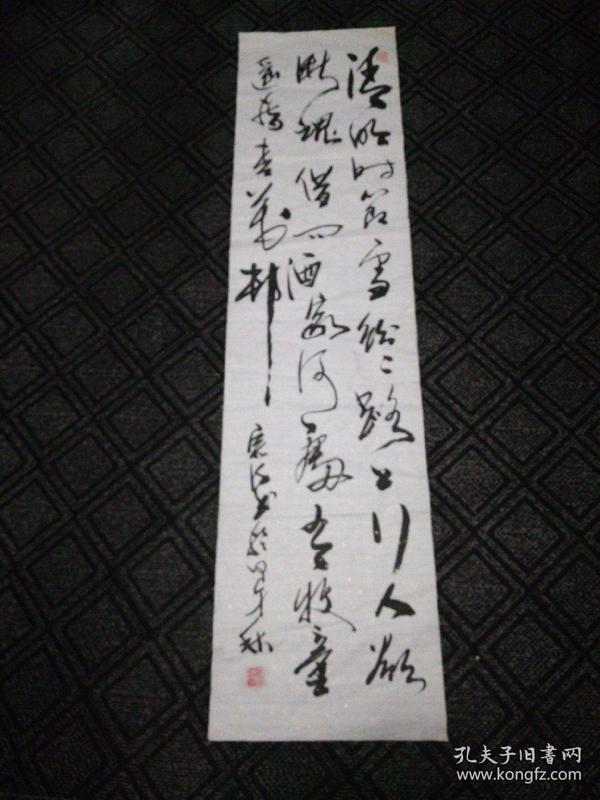 清明时节雨纷々路上行人欲
断魂借问酒家何處有牧童
遥指杏花村
书於年秋
孔夫子旧书网
www.kongfz.com